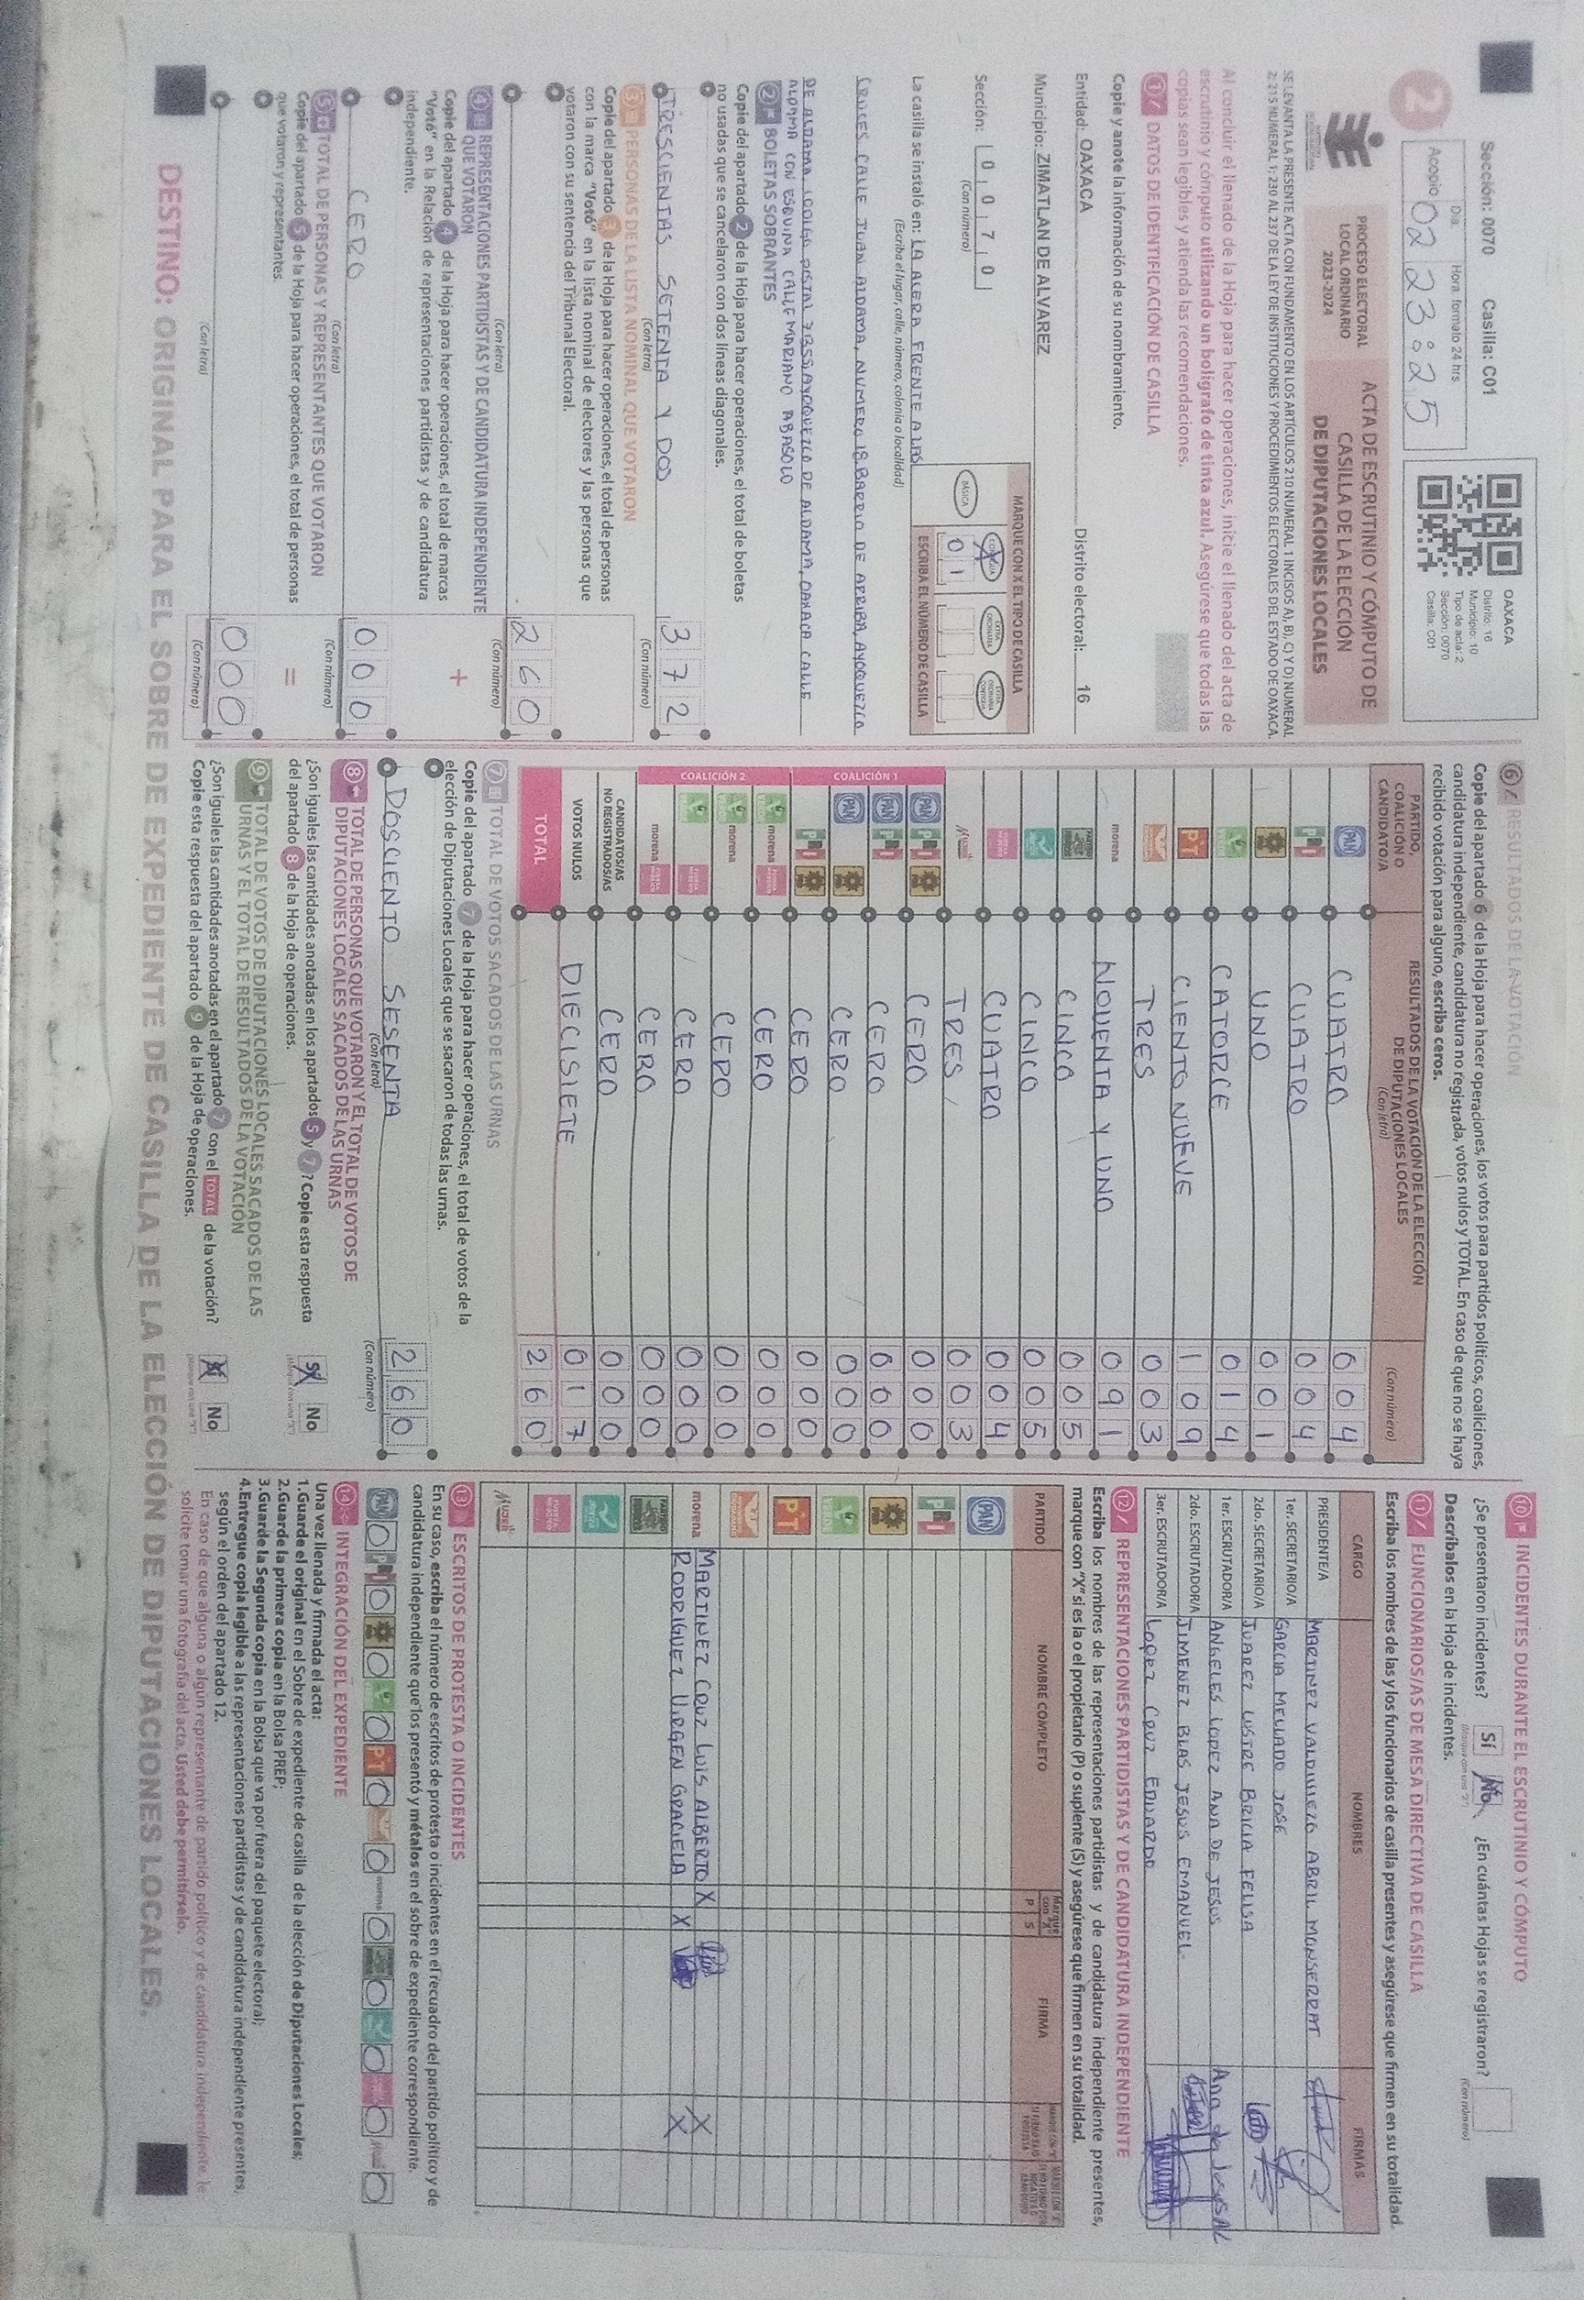 Sección: 0070 Casilla: C01
Día Hora formato 24 hrs
Acopio 02 23:25
2
OAXACA
Distrito: 16
Municipio: 10
Tipo de acta: 2
Sección: 0070
Casilla: C01
PROCESO ELECTORAL
LOCAL ORDINARIO
2023-2024
ACTA DE ESCRUTINIO Y CÓMPUTO DE
CASILLA DE LA ELECCIÓN
DE DIPUTACIONES LOCALES
SE LEVANTA LA PRESENTE ACTA CON FUNDAMENTO EN LOS ARTÍCULOS 210 NUMERAL 1 INCISOS A), B), C) Y D) NUMERAL
2; 215 NUMERAL 1; 230 AL 237 DE LA LEY DE INSTITUCIONES Y PROCEDIMIENTOS ELECTORALES DEL ESTADO DE OAXACA.
Al concluir el llenado de la Hoja para hacer operaciones, inicie el llenado del acta de
escrutinio y cómputo utilizando un bolígrafo de tinta azul. Asegúrese que todas las
copias sean legibles y atienda las recomendaciones.
1 DATOS DE IDENTIFICACIÓN DE CASILLA
Copie y anote la información de su nombramiento.
Entidad: OAXACA Distrito electoral: 16
Municipio: ZIMATLAN DE ALVAREZ
Sección: 0 0 7 0
(Con número)
MARQUE CON X EL TIPO DE CASILLA
BÁSICA
ESCRIBA EL NÚMERO DE CASILLA
0 1
La casilla se instaló en: LA ACERA FRENTE A LAS
(Escriba el lugar, calle, número, colonia o localidad)
CRUCES CALLE JUAN ALDAMA, NUMERO 18 BARRIO DE ARRIBA, AYOQUEZCO
DE ALDAMA, CODIGO POSTAL AYOQUEZCO DE ALDAMA, OAXACA CALLE
ALDAMA CON ESQUINA CALLE MARIANO ABASOLO
2 BOLETAS SOBRANTES
Copie del apartado 2 de la Hoja para hacer operaciones, el total de boletas
no usadas que se cancelaron con dos líneas diagonales.
TRESCIENTAS SETENTA Y DOS 3 7 2
(Con letra) (Con número)
3 PERSONAS DE LA LISTA NOMINAL QUE VOTARON
Copie del apartado 3 de la Hoja para hacer operaciones, el total de personas
con la marca "Votó" en la lista nominal de electores y las personas que
votaron con su sentencia del Tribunal Electoral.
2 6 0
(Con letra) (Con número)
4 REPRESENTACIONES PARTIDISTAS Y DE CANDIDATURA INDEPENDIENTE
QUE VOTARON
+
Copie del apartado 4 de la Hoja para hacer operaciones, el total de marcas
"Votó" en la Relación de representaciones partidistas y de candidatura
independiente.
CERO 0 0 0
(Con letra) (Con número)
5 TOTAL DE PERSONAS Y REPRESENTANTES QUE VOTARON
=
Copie del apartado 5 de la Hoja para hacer operaciones, el total de personas
que votaron y representantes.
0 0 0
(Con letra) (Con número)
6 RESULTADOS DE LA VOTACIÓN
Copie del apartado 6 de la Hoja para hacer operaciones, los votos para partidos políticos, coaliciones,
candidatura independiente, candidatura no registrada, votos nulos y TOTAL. En caso de que no se haya
recibido votación para alguno, escriba ceros.
PARTIDO,
COALICIÓN O
CANDIDATO/A
RESULTADOS DE LA VOTACIÓN DE LA ELECCIÓN
DE DIPUTACIONES LOCALES
(Con letra)
(Con número)
PAN CUATRO 0 0 4
PRI CUATRO 0 0 4
UNO 0 0 1
CATORCE 0 1 4
PT CIENTO NUEVE 1 0 9
TRES 0 0 3
morena NOVENTA Y UNO 0 9 1
CINCO 0 0 5
CINCO 0 0 5
CUATRO 0 0 4
TRES 0 0 3
COALICIÓN 1
PAN PRI CERO 0 0 0
PAN PRI CERO 0 0 0
PAN CERO 0 0 0
PRI CERO 0 0 0
COALICIÓN 2
morena CERO 0 0 0
morena CERO 0 0 0
CERO 0 0 0
morena CERO 0 0 0
CANDIDATOS/AS
NO REGISTRADOS/AS CERO 0 0 0
VOTOS NULOS DIECISIETE 0 1 7
TOTAL 2 6 0
7 TOTAL DE VOTOS SACADOS DE LAS URNAS
Copie del apartado 7 de la Hoja para hacer operaciones, el total de votos de la
elección de Diputaciones Locales que se sacaron de todas las urnas.
DOSCIENTO SESENTA 2 6 0
(Con letra) (Con número)
8 TOTAL DE PERSONAS QUE VOTARON Y EL TOTAL DE VOTOS DE
DIPUTACIONES LOCALES SACADOS DE LAS URNAS
¿Son iguales las cantidades anotadas en los apartados 5 y 7? Copie esta respuesta
del apartado 8 de la Hoja de operaciones.
Sí No
9 TOTAL DE VOTOS DE DIPUTACIONES LOCALES SACADOS DE LAS
URNAS Y EL TOTAL DE RESULTADOS DE LA VOTACIÓN
¿Son iguales las cantidades anotadas en el apartado 7 con el TOTAL de la votación?
Copie esta respuesta del apartado 9 de la Hoja de operaciones.
Sí No
10 INCIDENTES DURANTE EL ESCRUTINIO Y CÓMPUTO
¿Se presentaron incidentes? Sí No ¿En cuántas Hojas se registraron?
(Marque con una "X") (Con número)
Descríbalos en la Hoja de incidentes.
11 FUNCIONARIOS/AS DE MESA DIRECTIVA DE CASILLA
Escriba los nombres de las y los funcionarios de casilla presentes y asegúrese que firmen en su totalidad.
CARGO NOMBRES FIRMAS
PRESIDENTE/A MARTINEZ VALDIVIEZO ABRIL MONSERRAT
1er. SECRETARIO/A GARCIA MELLADO JOSE
2do. SECRETARIO/A JUAREZ LUSTRE BRICIA FELISA
1er. ESCRUTADOR/A ANGELES LOPEZ ANA DE JESUS
2do. ESCRUTADOR/A JIMENEZ BLAS JESUS EMANUEL
3er. ESCRUTADOR/A LOPEZ CRUZ EDUARDO
12 REPRESENTACIONES PARTIDISTAS Y DE CANDIDATURA INDEPENDIENTE
Escriba los nombres de las representaciones partidistas y de candidatura independiente presentes,
marque con "X" si es la o el propietario (P) o suplente (S) y asegúrese que firmen en su totalidad.
PARTIDO NOMBRE COMPLETO Marque con "X" P S FIRMA
PAN
PRI
PT
morena MARTINEZ CRUZ LUIS ALBERTO X X
RODRIGUEZ VIRGEN GRACIELA X X
13 ESCRITOS DE PROTESTA O INCIDENTES
En su caso, escriba el número de escritos de protesta o incidentes en el recuadro del partido político y de
candidatura independiente que los presentó y métalos en el sobre de expediente correspondiente.
14 INTEGRACIÓN DEL EXPEDIENTE
Una vez llenada y firmada el acta:
1.Guarde el original en el Sobre de expediente de casilla de la elección de Diputaciones Locales;
2.Guarde la primera copia en la Bolsa PREP;
3.Guarde la Segunda copia en la Bolsa que va por fuera del paquete electoral;
4.Entregue copia legible a las representaciones partidistas y de candidatura independiente presentes,
según el orden del apartado 12.
En caso de que alguna o algún representante de partido político y de candidatura independiente, le
solicite tomar una fotografía del acta. Usted debe permitírselo.
DESTINO: ORIGINAL PARA EL SOBRE DE EXPEDIENTE DE CASILLA DE LA ELECCIÓN DE DIPUTACIONES LOCALES.